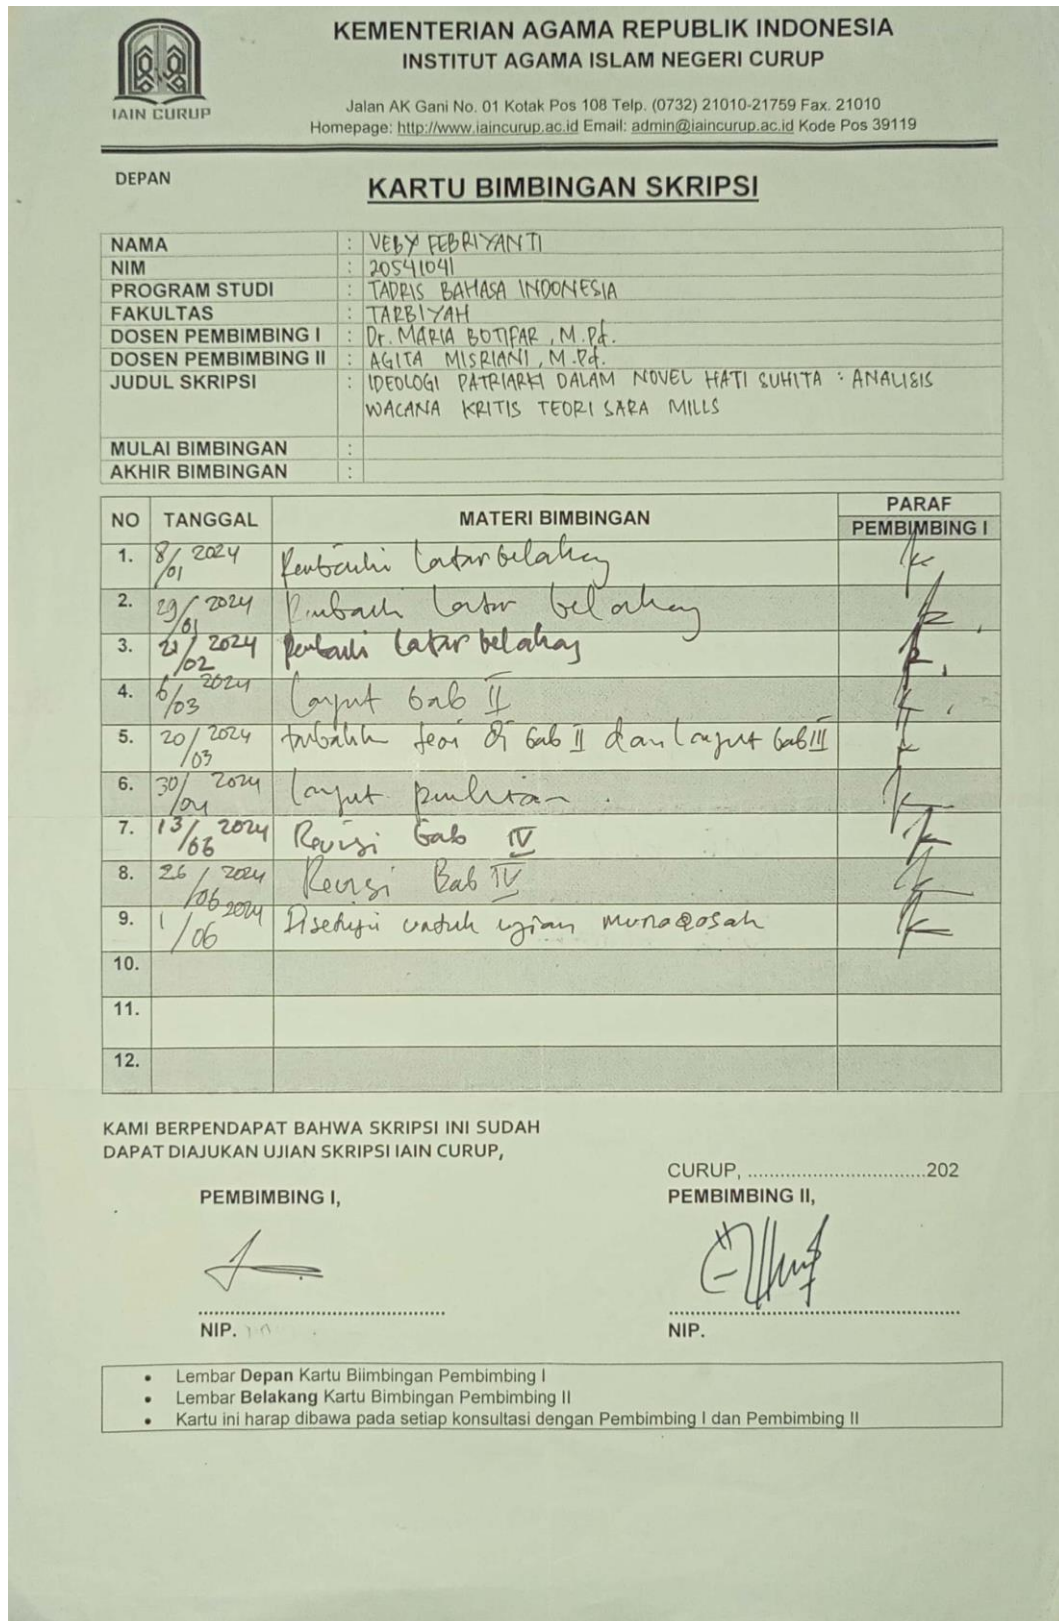 KEMENTERIAN AGAMA REPUBLIK INDONESIA
INSTITUT AGAMA ISLAM NEGERI CURUP
IAIN CURUP
Jalan AK Gani No. 01 Kotak Pos 108 Telp. (0732) 21010-21759 Fax. 21010
Homepage: http://www.iaincurup.ac.id Email: admin@iaincurup.ac.id Kode Pos 39119
DEPAN
KARTU BIMBINGAN SKRIPSI
NAMA : VEBY FEBRIYANTI
NIM : 20541041
PROGRAM STUDI : TADRIS BAHASA INDONESIA
FAKULTAS : TARBIYAH
DOSEN PEMBIMBING I : Dr. MARIA BOTIFAR, M.Pd.
DOSEN PEMBIMBING II : AGITA MISRIANI, M.Pd.
JUDUL SKRIPSI : IDEOLOGI PATRIARKI DALAM NOVEL HATI SUHITA : ANALISIS
WACANA KRITIS TEORI SARA MILLS
MULAI BIMBINGAN :
AKHIR BIMBINGAN :
NO TANGGAL MATERI BIMBINGAN PARAF
PEMBIMBING I
1. 8/01 2024 latar belakang
2. 29/01 2024 latar belakang
3. 21/02 2024 latar belakang
4. 6/03 2024 Lanjut bab II
5. 20/03 2024 teori di bab II dan lanjut bab III
6. 30/04 2024 Lanjut penelitian.
7. 13/06 2024 Revisi bab IV
8. 26/06 2024 Revisi Bab IV
9. 1/06 2024 Disetujui untuk ujian munaqosah
10.
11.
12.
KAMI BERPENDAPAT BAHWA SKRIPSI INI SUDAH
DAPAT DIAJUKAN UJIAN SKRIPSI IAIN CURUP,
CURUP, .................................202
PEMBIMBING I, PEMBIMBING II,
NIP. NIP.
• Lembar Depan Kartu Biimbingan Pembimbing I
• Lembar Belakang Kartu Bimbingan Pembimbing II
• Kartu ini harap dibawa pada setiap konsultasi dengan Pembimbing I dan Pembimbing II